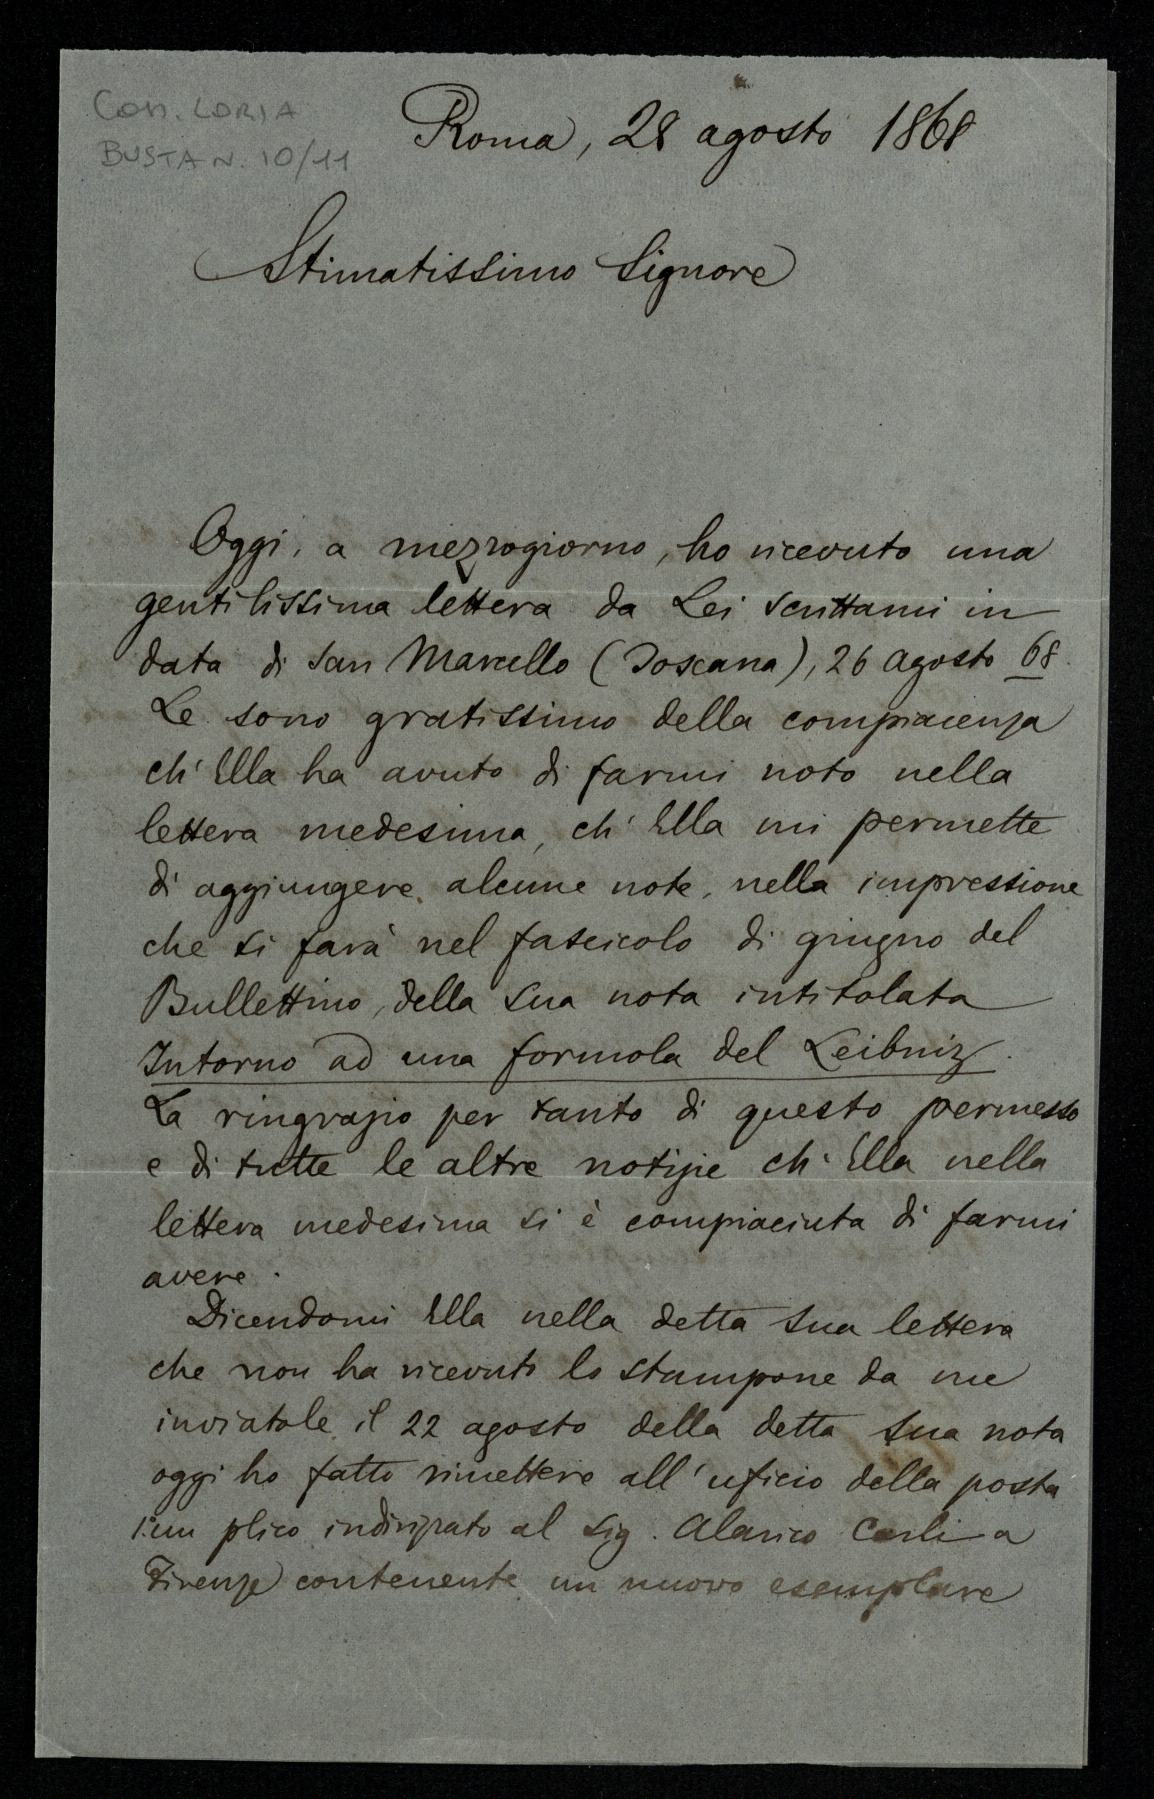 Con. LORIA
BUSTA N. 10/11
Roma, 28 agosto 1868
Stimatissimo Signore
Oggi, a mezzogiorno, ho ricevuto una
gentilissima lettera da Lei scrittami in
data di San Marcello (Toscana), 26 agosto 68.
Le sono gratissimo della compiacenza
ch' Ella ha avuto di farmi noto nella
lettera medesima, ch' Ella mi permette
di aggiungere alcune note, nella impressione
che si farà nel fascicolo di giugno del
Bullettino, della sua nota intitolata
Intorno ad una formola del Leibniz.
La ringrazio per tanto di questo permesso
e di tutte le altre notizie ch' Ella nella
lettera medesima si è compiaciuta di farmi
avere.
Dicendomi Ella nella detta sua lettera
che non ha ricevuto lo stampone da me
inviatole il 22 agosto della detta sua nota
oggi ho fatto rimettere all' uficio della posta
1.° un plico indirizzato al Sig. Alarico Carli a
Firenze contenente un nuovo esemplare